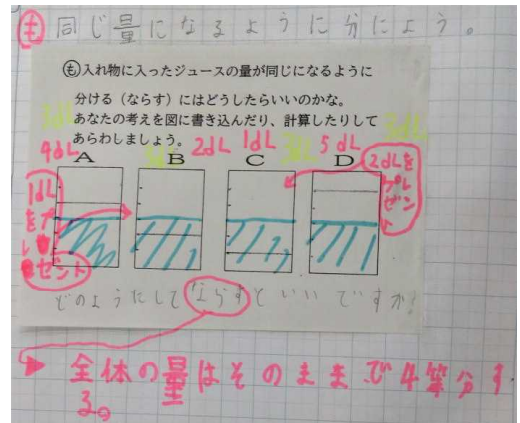 も 同じ量になるように分けよう。
も 入れ物に入ったジュースの量が同じになるように
分ける（ならす）にはどうしたらいいのかな。
あなたの考えを図に書き込んだり、計算したりして
あらわしましょう。
3dL
4dL 3dL 2dL 1dL 3dL 5dL
A B C D
1dLをプレゼント
2dLをプレゼント
どのようにしてならすといいですか?
全体の量はそのままで4等分す
る。